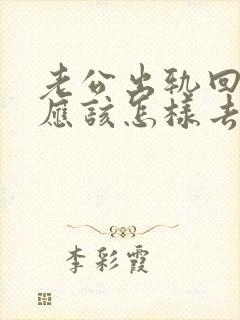 老公出轨回
应该怎样去
李彩霞